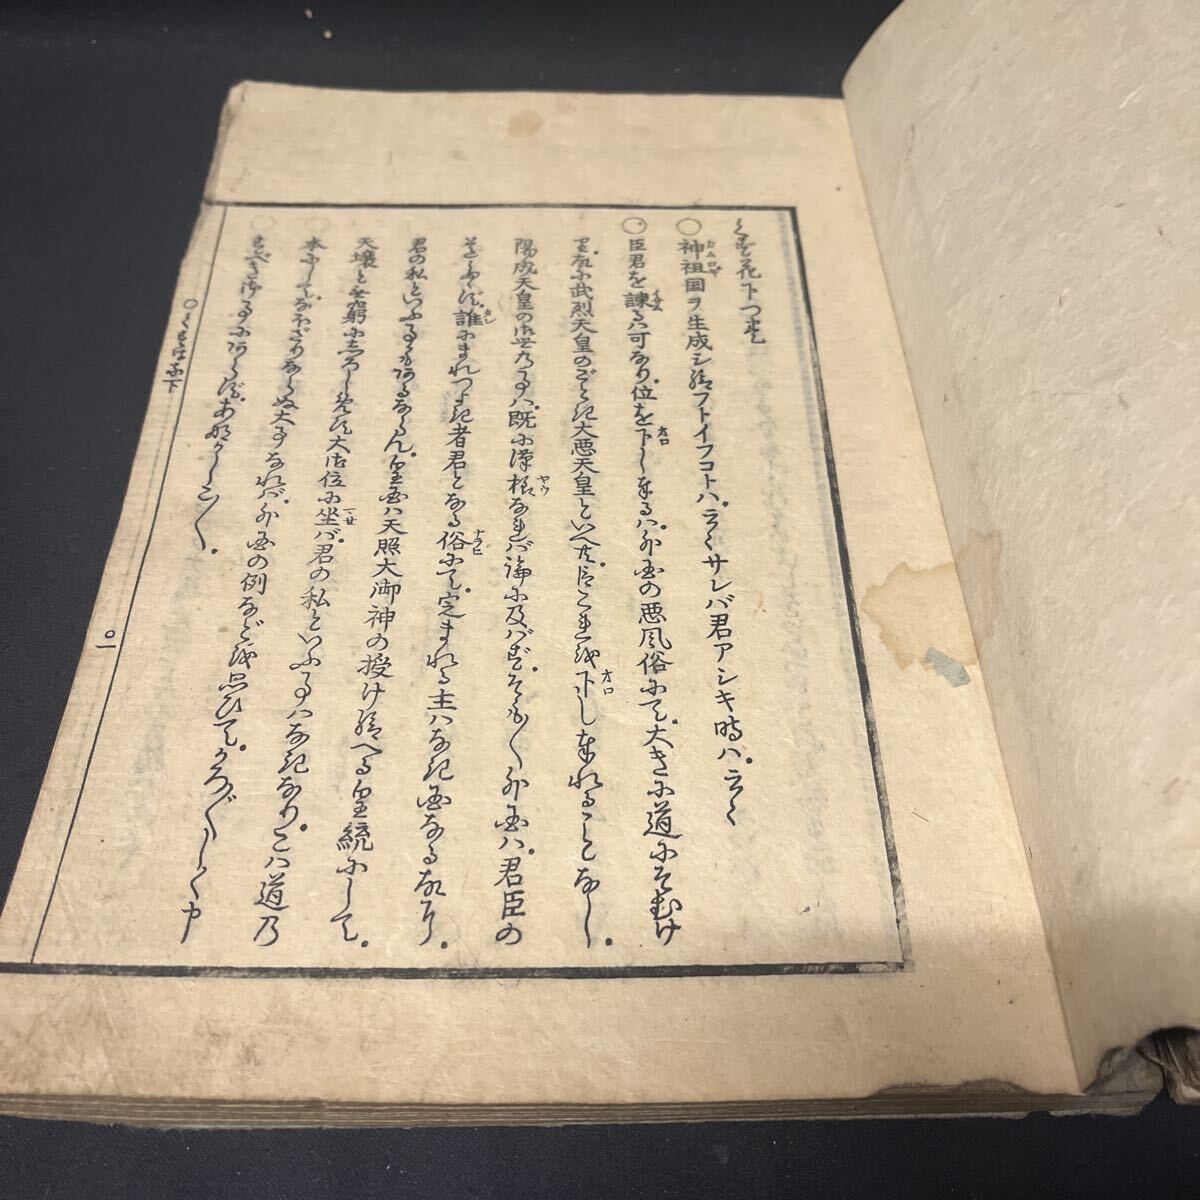 くず花下つ巻
○神祖国ヲ生成シ給フトイフコトハ、云々サレバ君アシキ時ハ、云々
○臣君を諫るは可なり、位を下し奉るは、外国の悪風俗にて、大きに道にそむけ
り、故に武烈天皇のごとき大悪天皇といへども、これを下し奉れることなし、
陽成天皇の御世の事は、既に漢様なれば論に及ばず、そも〳〵外国は、君臣の
道たゞず、誰にまれつよき者君となる俗にて、定まれる主はなき国なる故に、
君の私といふ事も有るならん、皇国は天照大御神の授け給へる皇統にして、
天壌と無窮にしろしめす大御位に坐ば、君の私といふ事はなきなり、こは道の
本にして、なほざりならぬ大事なれば、外国の例などを思ひて、かろ〴〵しく申
すべき御事にあらず、あなかしこ〳〵、
○くすはな下
○一